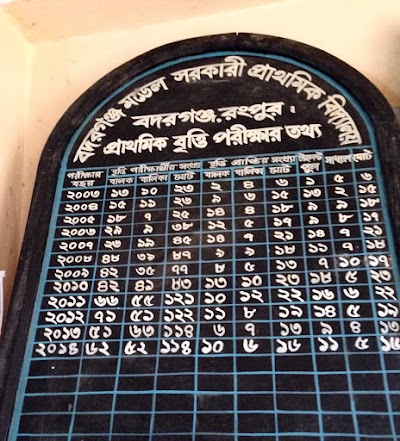 বদরগঞ্জ মডেল সরকারী প্রাথমিক বিদ্যালয়
বদরগঞ্জ, রংপুর।
প্রাথমিক বৃত্তি পরীক্ষার তথ্য
পরীক্ষার বৃত্তি পরীক্ষার্থীর সংখ্যা বৃত্তি প্রাপ্তির সংখ্যা সাধারণ মোট
বছর বালক বালিকা মোট বালক বালিকা মোট পুল
২০০৩ ১৩ ১০ ২৩ ২ ৪ ৬ ১ ৫ ৬
২০০৪ ১৫ ১১ ২৬ ৯ ৬ ১৫ ১৩ ২ ১৫
২০০৫ ১৮ ৭ ২৫ ১৪ ৪ ১৮ ৯ ৯ ১৮
২০০৬ ২৯ ৯ ৩৮ ১২ ৫ ১৭ ৯ ৮ ১৭
২০০৭ ২৬ ১৯ ৪৫ ১৪ ৭ ২১ ১৪ ৭ ২১
২০০৮ ৪৮ ৩৯ ৮৭ ৯ ৯ ১৮ ১১ ৭ ১৮
২০০৯ ৪২ ৩৫ ৭৭ ৮ ৫ ১৩ ৭ ১০ ১৭
২০১০ ৪২ ৪১ ৮৩ ১৩ ১০ ২৩ ১৮ ৫ ২৩
২০১১ ৬৬ ৫৫ ১২১ ১০ ১২ ২২ ১৬ ৬ ২২
২০১২ ৭১ ৫১ ১২২ ১১ ৮ ১৯ ১৪ ৫ ১৯
২০১৩ ৫১ ৬৩ ১১৪ ৬ ৭ ১৩ ৯ ৪ ১৩
২০১৪ ৬২ ৫২ ১১৪ ১০ ৬ ১৬ ১১ ৫ ১৬